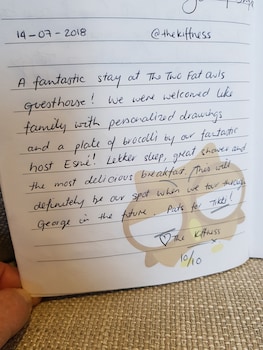 14-07-2018 @thekiffness
A fantastic stay at The Two Fat owls
guesthouse! We were welcomed like
family with personalized drawings
and a plate of brocolli by our fantastic
host Esmé! Lekker sleep, great shower and
the most delicious breakfast. This will
definitely be our spot when we tour through
George in the future. Pats for Tikki!
The Kiffness
10/10